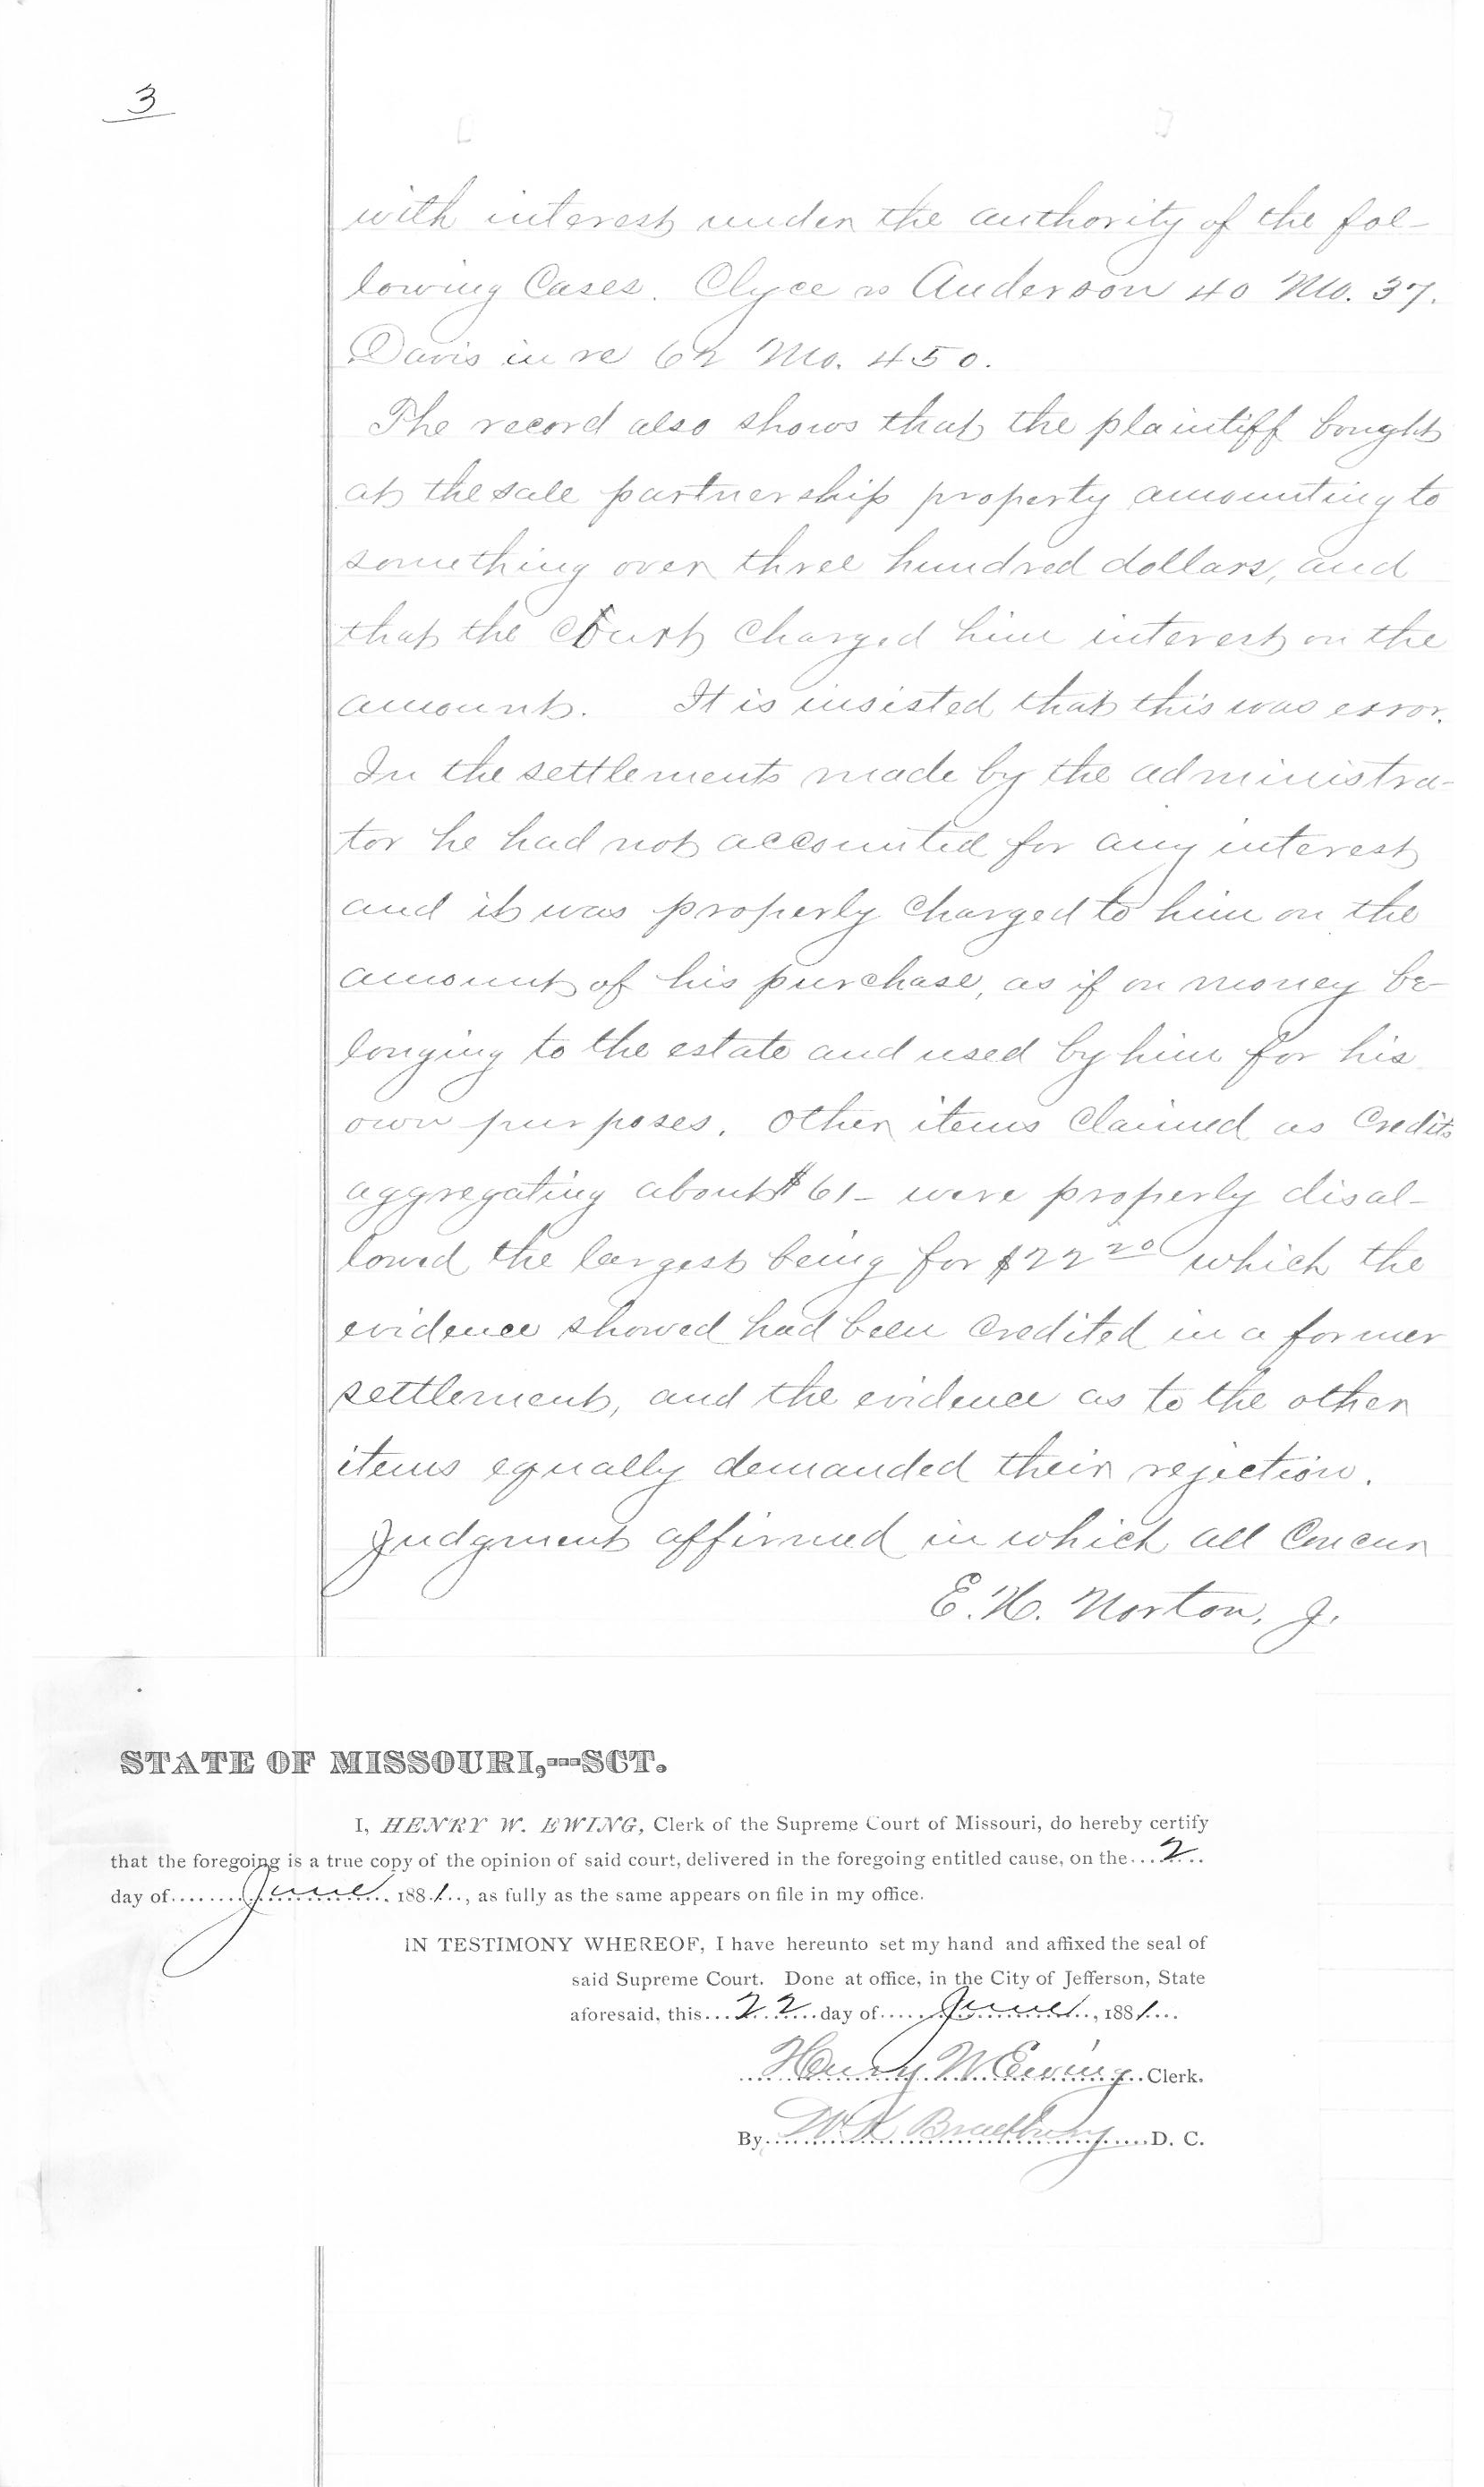 3
with interest under the authority of the fol-
lowing Cases. Clyce vs Anderson 40 Mo. 37.
Davis in re 62 Mo. 450.
The record also shows that the plaintiff bought
at the sale partnership property amounting to
something over three hundred dollars, and
that the Court Charged him interest on the
amount. It is insisted that this was error.
In the settlements made by the administra-
tor he had not accounted for any interest
and it was properly Charged to him on the
amount of his purchase, as if on money be-
longing to the estate and used by him for his
own purposes. Other items Claimed as Credits
aggregating about $61- were properly disal-
lowed the largest being for $22 20 which the
evidence showed had been Credited in a former
settlement, and the evidence as to the other
items equally demanded their rejection.
Judgment affirmed in which all Concur
E. H. Norton, J.
STATE OF MISSOURI,---SCT.
I, HENRY W. EWING, Clerk of the Supreme Court of Missouri, do hereby certify
that the foregoing is a true copy of the opinion of said court, delivered in the foregoing entitled cause, on the...2...
day of........June........188.1.., as fully as the same appears on file in my office.
IN TESTIMONY WHEREOF, I have hereunto set my hand and affixed the seal of
said Supreme Court. Done at office, in the City of Jefferson, State
aforesaid, this...22...day of.....June....., 1881....
Henry W Ewing Clerk.
By W K Bradbury D. C.